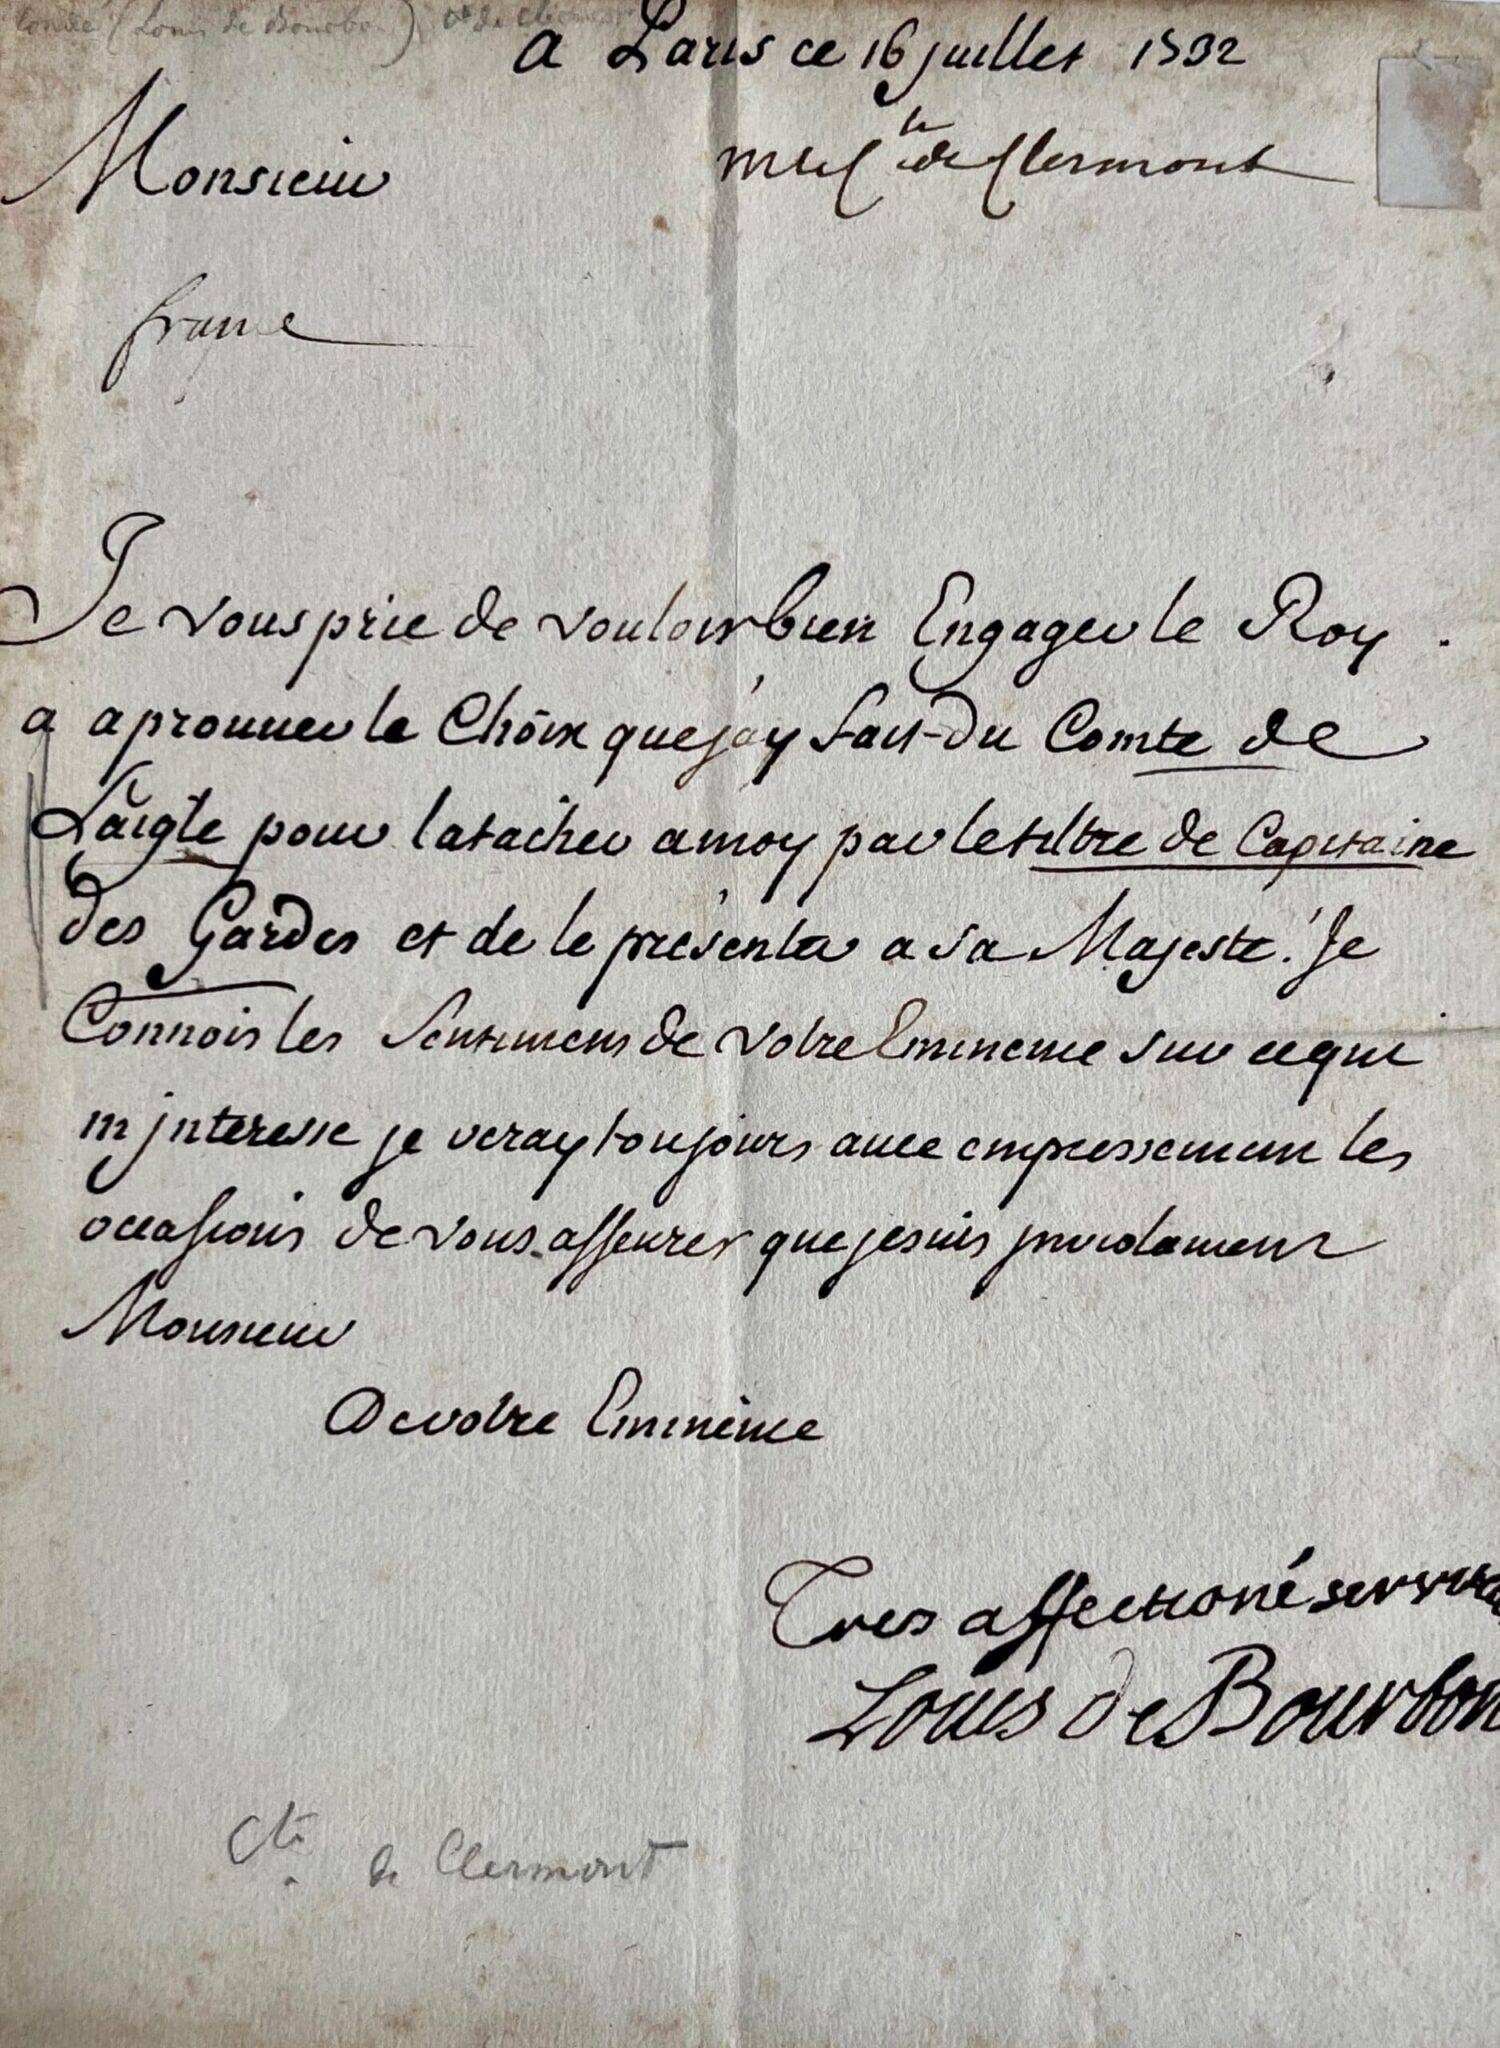 Condé (Louis de Bourbon) Cte de Clermont
a Paris ce 16 juillet 1732
Monsieur
le
de Clermont
france
Je vous prie de vouloir bien Engager le Roy
a aprouuer le Choix que j'ay fait du Comte de
L'aigle pour l'atacher a moy par le tiltre de Capitaine
des Gardes et de le présenter a sa Majesté. Je
Connois les sentimens de votre Eminence sur ce qui
m'jnteresse je veray toujours auec empressement les
occasions de vous asseurer que je suis
Monsieur
De votre Eminence
Tres affectioné
Louis de Bourbon
Cte de Clermont